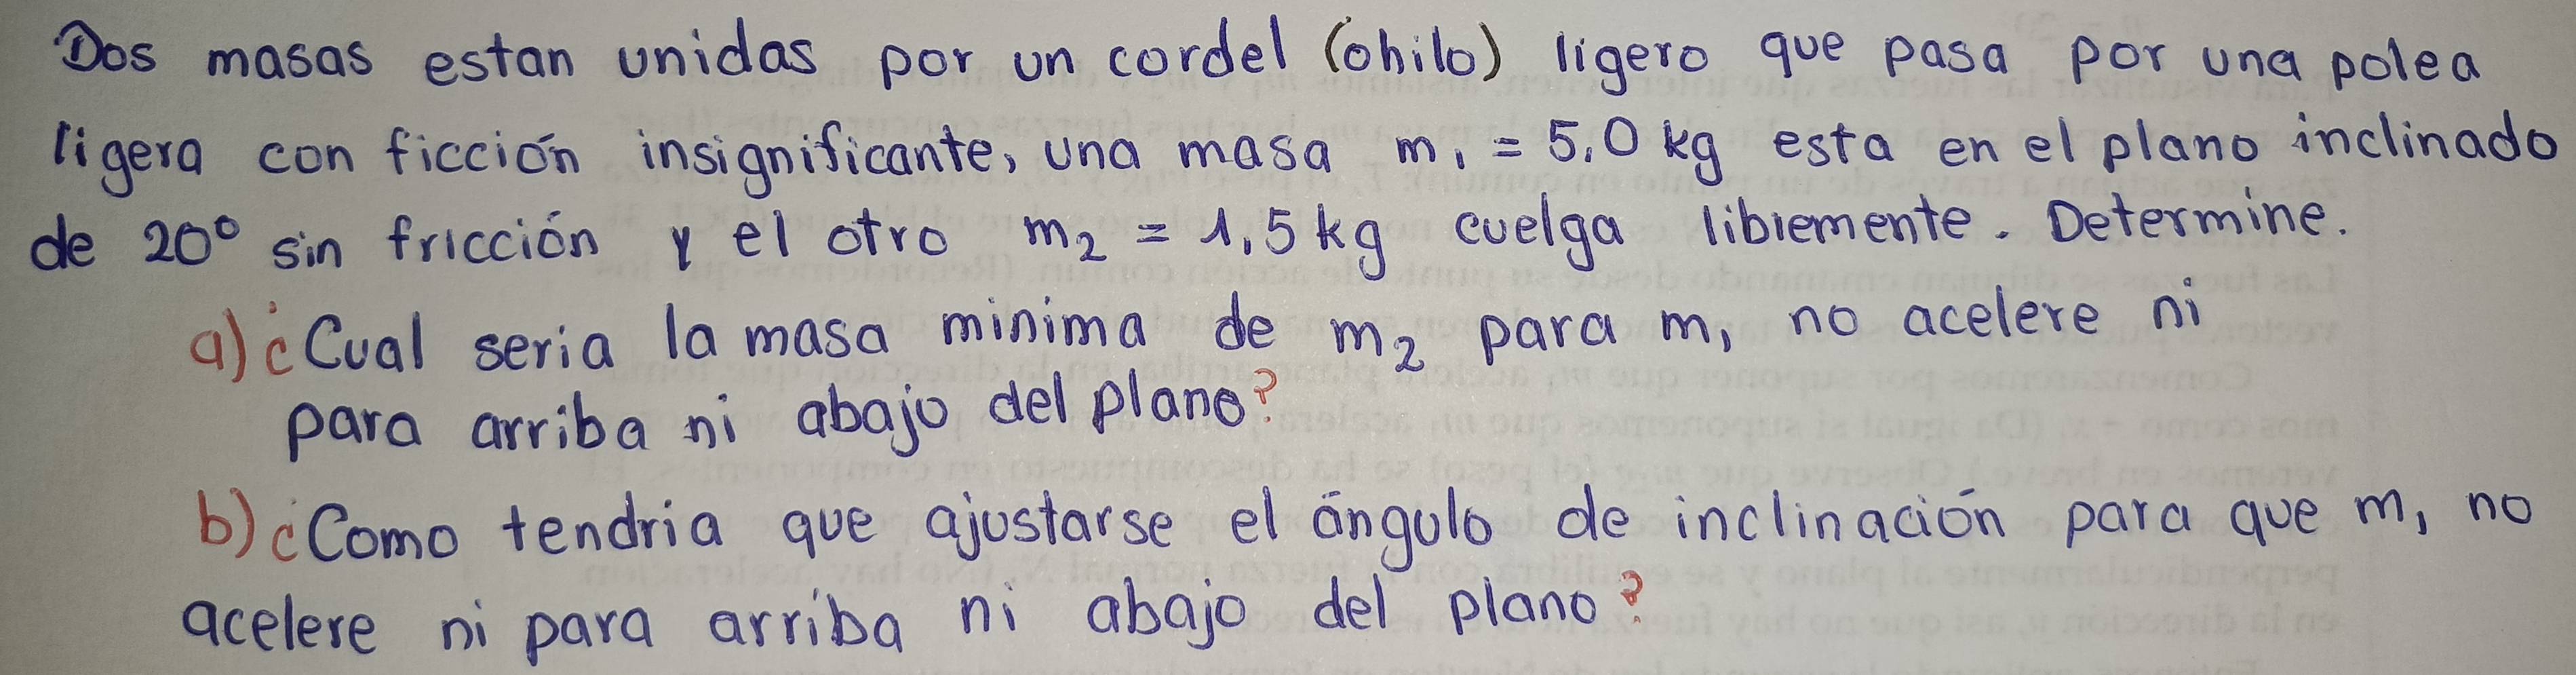 Dos masas estan unidas por un cordel (ohilo) ligero que pasa por una polea
ligera con ficción insignificante, una masa m₁ = 5,0 kg esta en el plano inclinado
de 20° sin fricción y el otro m₂ = 1,5 kg cuelga libremente. Determine.
a) ¿Cual seria la masa minima de m₂ para m₁ no acelere ni
para arriba ni abajo del plano?
b) ¿Como tendria que ajustarse el ángulo de inclinación para que m₁ no
acelere ni para arriba ni abajo del plano?